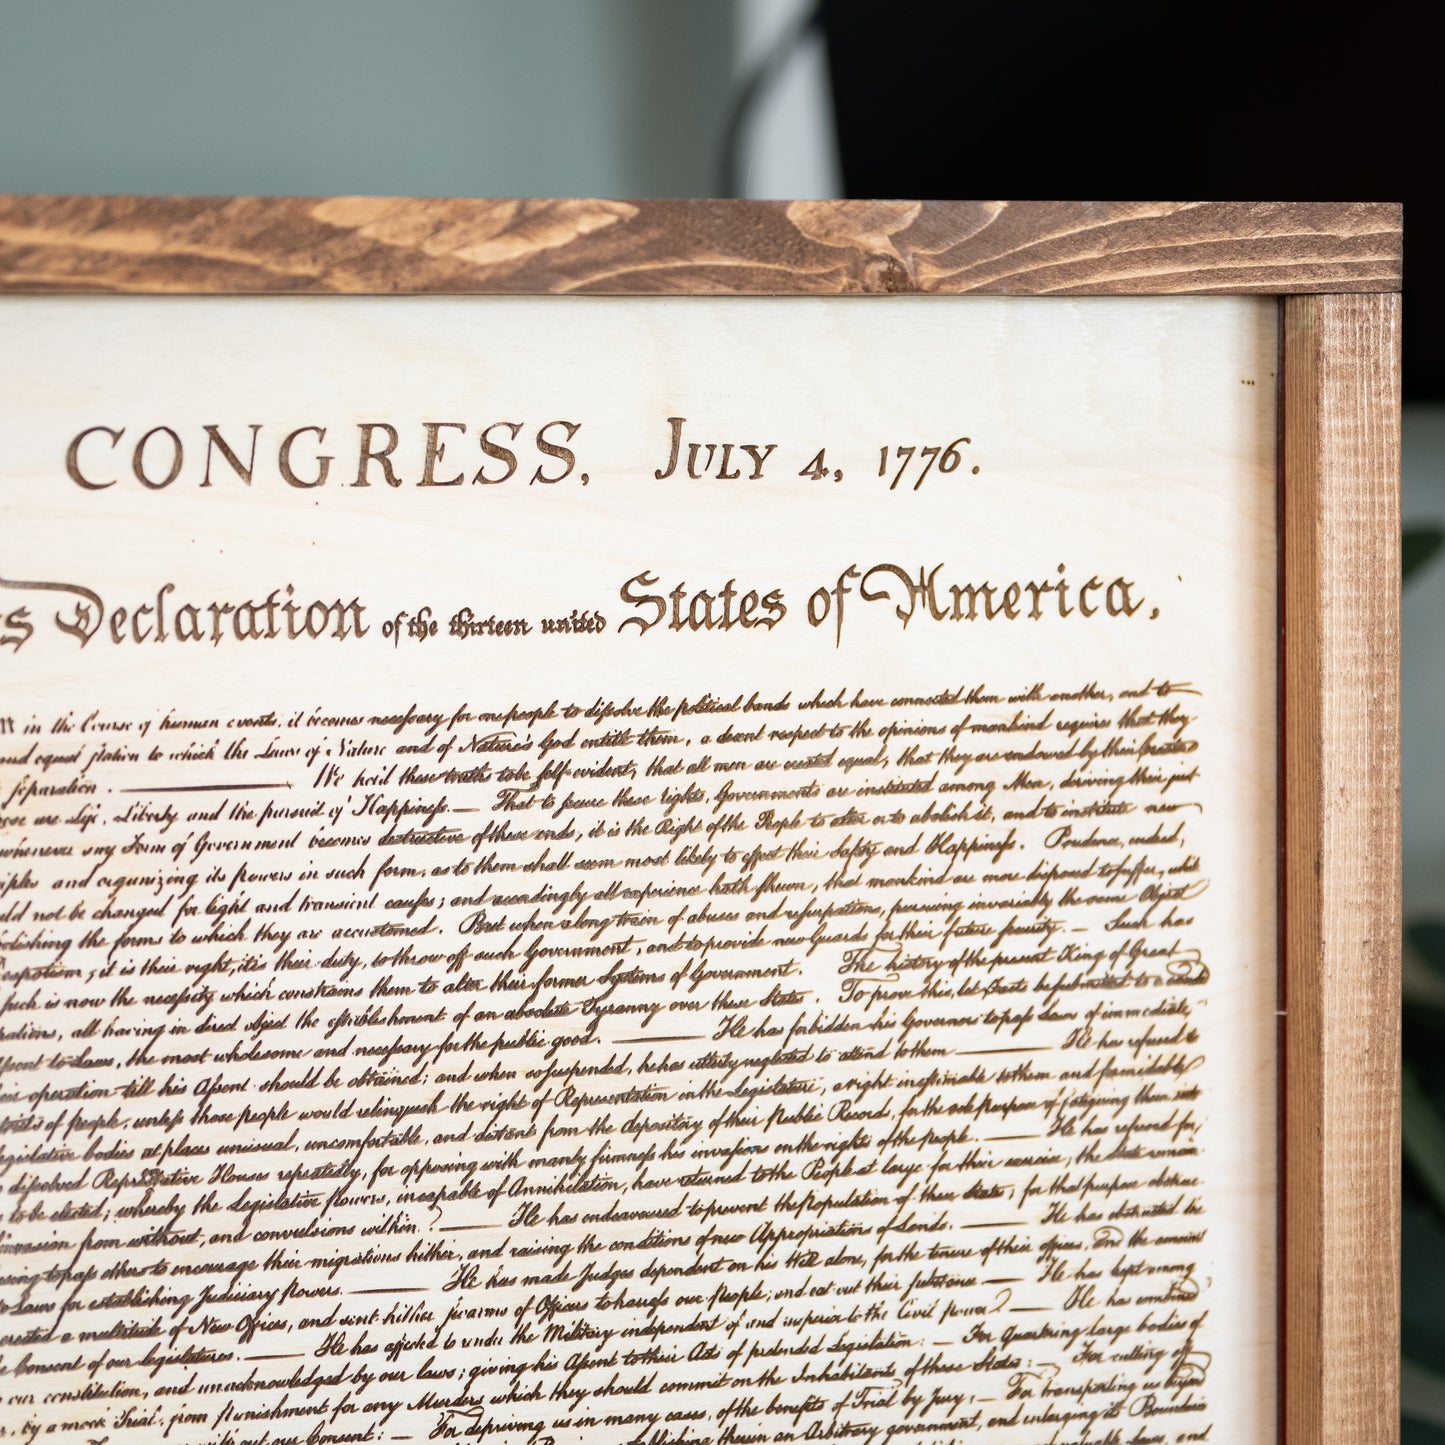 CONGRESS, JULY 4, 1776.
s Declaration of the thirteen united States of America,
in the Course of human events, it becomes necessary for one people to dissolve the political bands which have connected them with another, and to
and equal station to which the Laws of Nature and of Nature's God entitle them, a decent respect to the opinions of mankind requires that they
separation. ——— We hold these truths to be self-evident, that all men are created equal, that they are endowed by their Creator
are Life, Liberty and the pursuit of Happiness.— That to secure these rights, Governments are instituted among Men, deriving their just
whenever any Form of Government becomes destructive of these ends, it is the Right of the People to alter or to abolish it, and to institute new
iples and organizing its powers in such form, as to them shall seem most likely to effect their Safety and Happiness. Prudence, indeed,
uld not be changed for light and transient causes; and accordingly all experience hath shewn, that mankind are more disposed to suffer, while
bolishing the forms to which they are accustomed. But when a long train of abuses and usurpations, pursuing invariably the same Object
espotism, it is their right, it is their duty, to throw off such Government, and to provide new Guards for their future security. — Such has
such is now the necessity which constrains them to alter their former Systems of Government. The history of the present King of Great
rpations, all having in direct object the establishment of an absolute Tyranny over these States. To prove this, let Facts be submitted to a candid
Assent to Laws, the most wholesome and necessary for the public good. ——— He has forbidden his Governors to pass Laws of immediate
operation till his Assent should be obtained; and when so suspended, he has utterly neglected to attend to them ——— He has refused to
tricts of people, unless those people would relinquish the right of Representation in the Legislature, a right inestimable to them and formidable
egislative bodies at places unusual, uncomfortable, and distant from the depository of their Public Records, for the sole purpose of fatiguing them into
dissolved Representative Houses repeatedly, for opposing with manly firmness his invasions on the rights of the people. ——— He has refused for
to be elected; whereby the Legislative powers, incapable of Annihilation, have returned to the People at large for their exercise; the State remain
invasion from without, and convulsions within. ——— He has endeavoured to prevent the Population of these States; for that purpose obstruc
using to pass others to encourage their migrations hither, and raising the conditions of new Appropriations of Lands. ——— He has obstructed the
to Laws for establishing Judiciary Powers. ——— He has made Judges dependent on his Will alone, for the tenure of their offices, and the amount
erected a multitude of New Offices, and sent hither swarms of Officers to harass our People, and eat out their substance — He has kept among
e Consent of our legislatures. ——— He has affected to render the Military independent of and superior to the Civil Power. — He has combined
our constitution, and unacknowledged by our laws; giving his Assent to their Acts of pretended Legislation: — For Quartering large bodies of
, by a mock Trial, from Punishment for any Murders which they should commit on the Inhabitants of these States: — For cutting off
out our Consent: — For depriving us in many cases, of the benefits of Trial by Jury; — For transporting us beyond
establishing therein an Arbitrary government, and enlarging its Boundaries
Laws, and